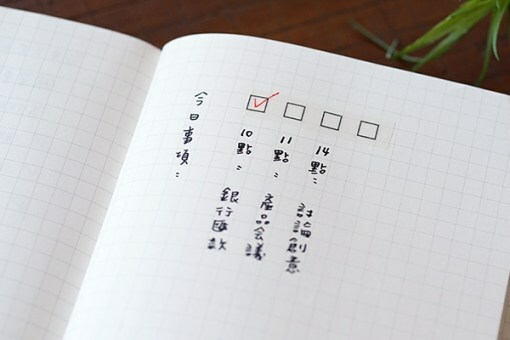 今日事項：
10點： 銀行匯款
11點： 產品会議
14點： 討論創意